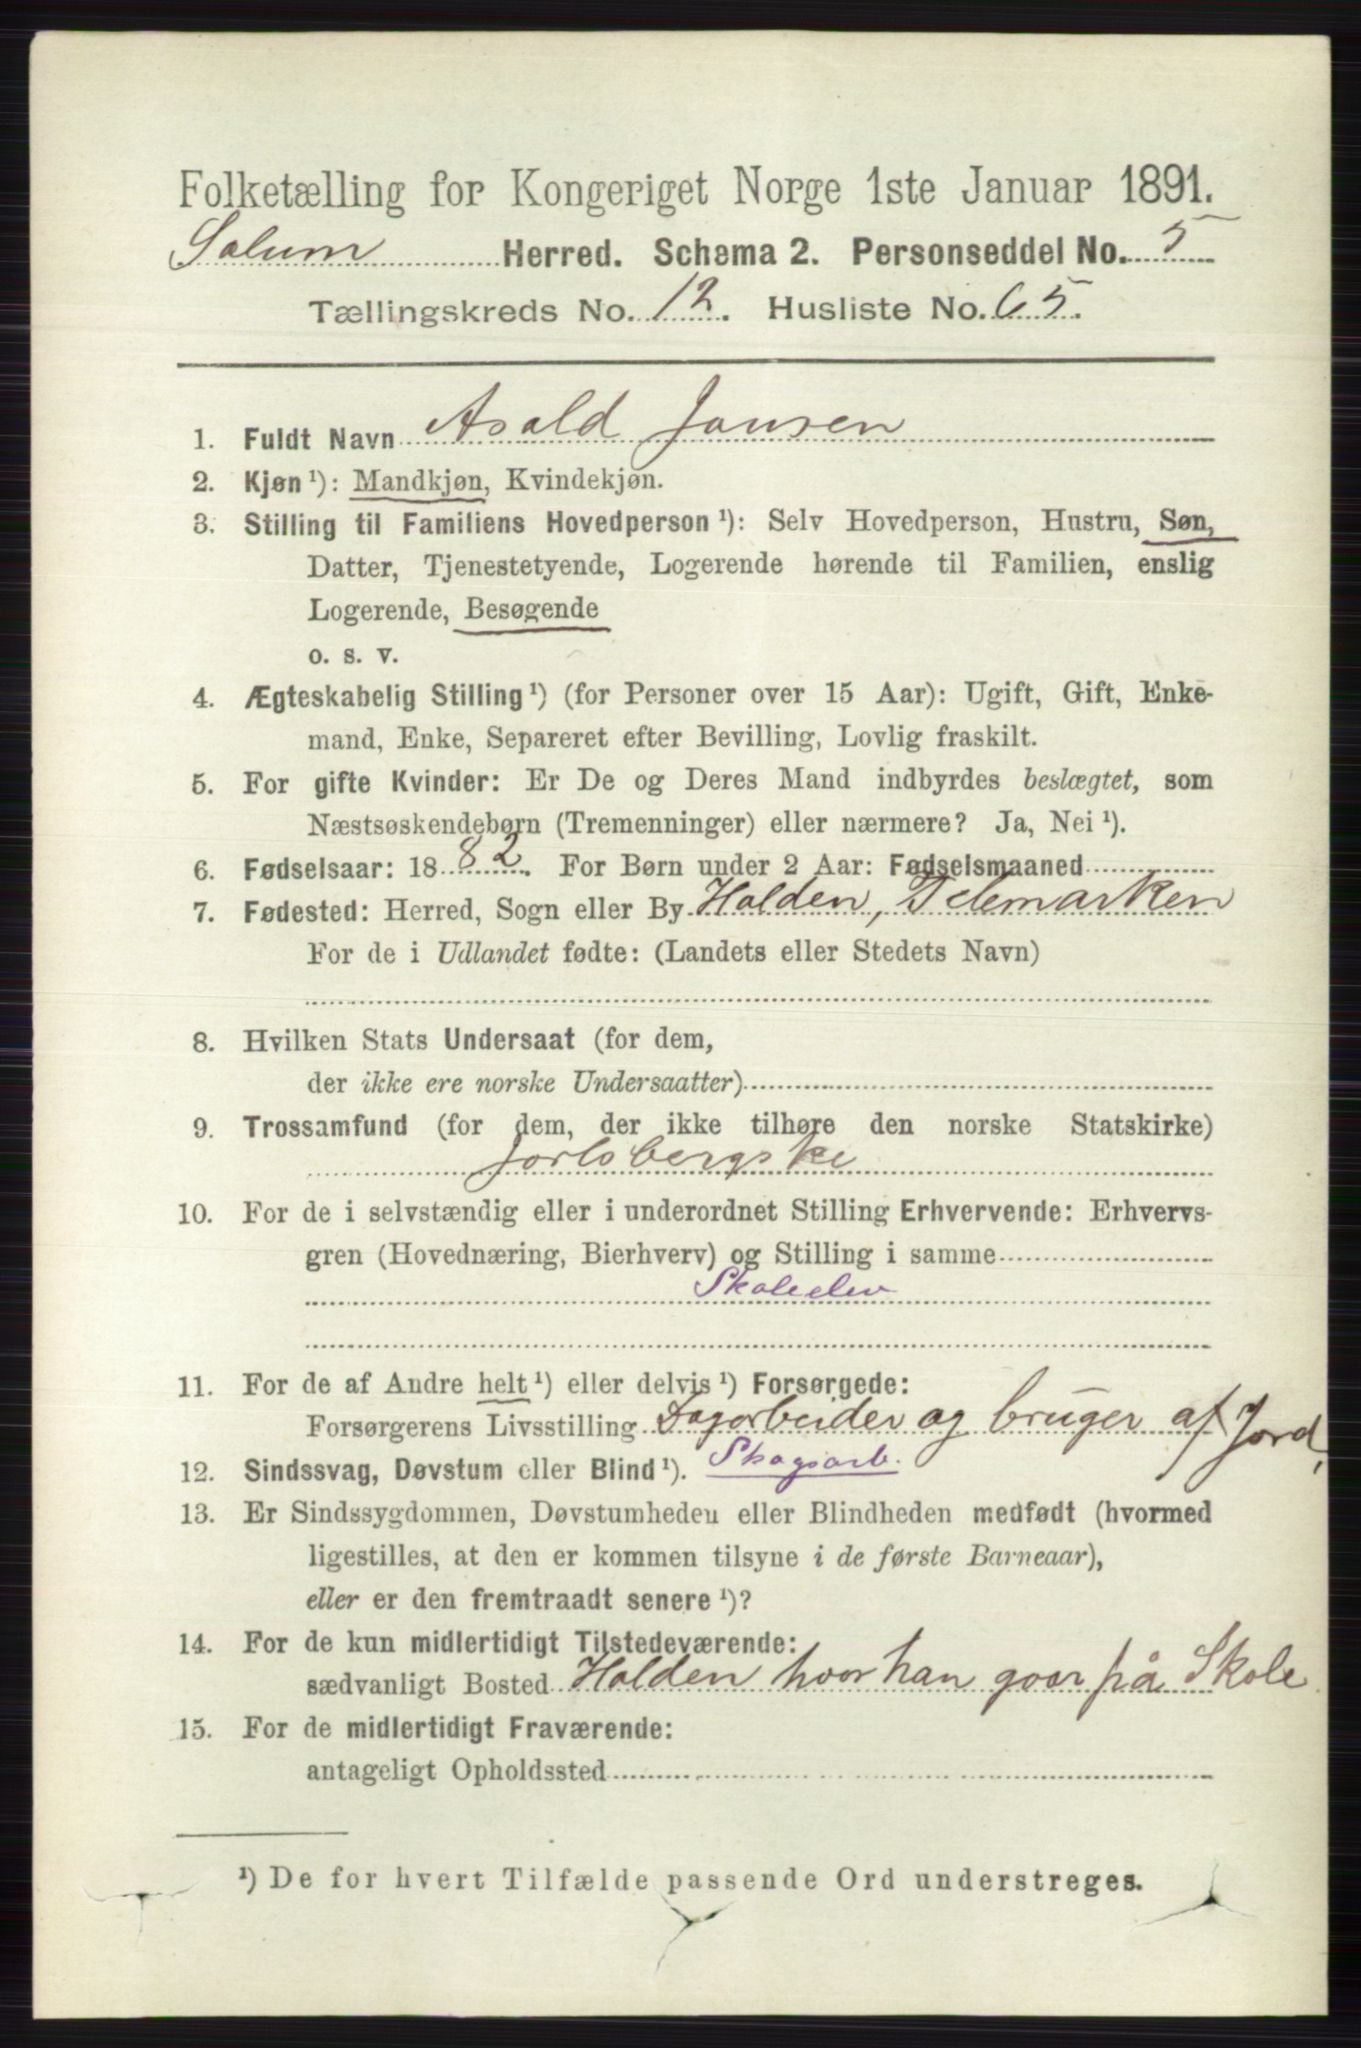 Folketælling for Kongeriget Norge 1ste Januar 1891.
Solum Herred. Schema 2. Personseddel No. 5
Tællingskreds No. 12. Husliste No. 65.
1. Fuldt Navn Asald Jansen
2. Kjøn ¹): Mandkjøn, Kvindekjøn.
3. Stilling til Familiens Hovedperson ¹): Selv Hovedperson, Hustru, Søn,
Datter, Tjenestetyende, Logerende hørende til Familien, enslig
Logerende, Besøgende
o. s. v.
4. Ægteskabelig Stilling ¹) (for Personer over 15 Aar): Ugift, Gift, Enke-
mand, Enke, Separeret efter Bevilling, Lovlig fraskilt.
5. For gifte Kvinder: Er De og Deres Mand indbyrdes beslægtet, som
Næstsøskendebørn (Tremenninger) eller nærmere? Ja, Nei ¹).
6. Fødselsaar: 1882. For Børn under 2 Aar: Fødselsmaaned
7. Fødested: Herred, Sogn eller By Holden, Telemarken
For de i Udlandet fødte: (Landets eller Stedets Navn)
8. Hvilken Stats Undersaat (for dem,
der ikke ere norske Undersaatter)
9. Trossamfund (for dem, der ikke tilhøre den norske Statskirke)
Jarlsbergske
10. For de i selvstændig eller i underordnet Stilling Erhvervende: Erhvervs-
gren (Hovednæring, Bierhverv) og Stilling i samme
Skoleelev
11. For de af Andre helt ¹) eller delvis ¹) Forsørgede:
Forsørgerens Livsstilling Dagarbeider og bruger af Jord,
12. Sindssvag, Døvstum eller Blind ¹). Skogsarb.
13. Er Sindssygdommen, Døvstumheden eller Blindheden medfødt (hvormed
ligestilles, at den er kommen tilsyne i de første Barneaar),
eller er den fremtraadt senere ¹)?
14. For de kun midlertidigt Tilstedeværende:
sædvanligt Bosted Holden hvor han gaar på Skole
15. For de midlertidigt Fraværende:
antageligt Opholdssted
¹) De for hvert Tilfælde passende Ord understreges.